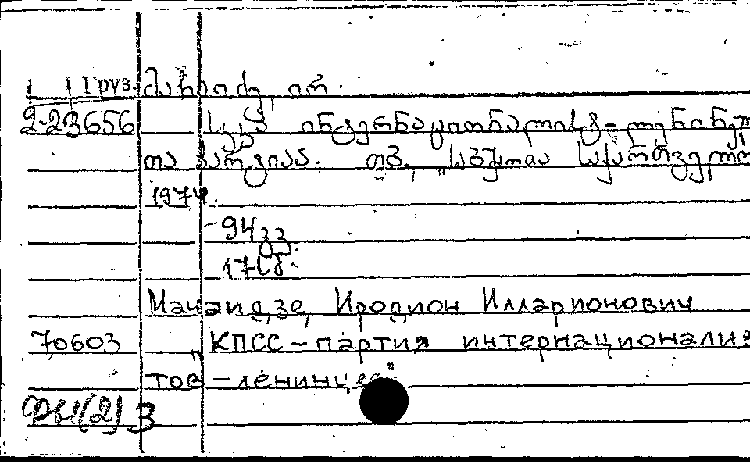 Груз.
2-23656 სკკპ ინტერნაციონალისტ-ლენინელ
თა პარტიაა. თბ., „საბჭოთა საქართველო
1974.
94 გვ.
17 სმ.
Мачаидзе, Иродион Илларионович
70603 „КПСС-партия интернационалис
тов-ленинцев"